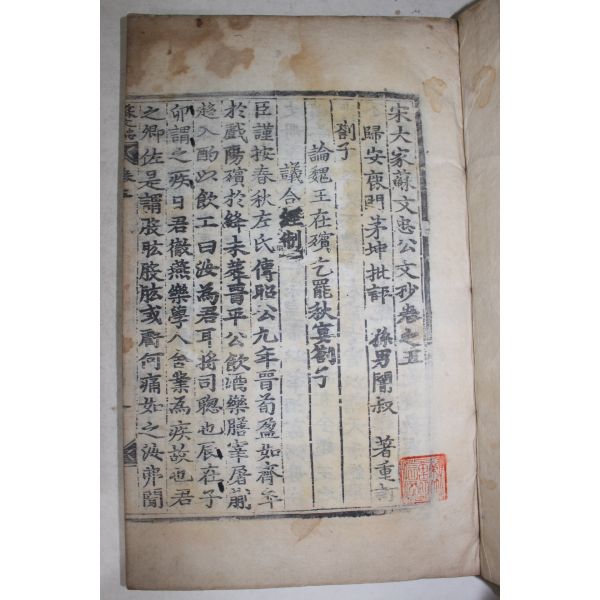 宋大家蘇文忠公文抄卷之五
歸安鹿門茅坤批評 孫男闇叔 著重訂
劄子
論魏王在殯乞罷秋宴劄子
議合經制
臣謹按春秋左氏傳昭公九年晉荀盈如齊卒
於戲陽殯於絳未葬晉平公飲酒樂膳宰屠蒯
趨入酌以飲工曰汝為君耳將司聰也辰在子
卯謂之疾日君徹燕樂學人舍業為疾故也君
之卿佐是謂股肱股肱或虧何痛如之汝弗聞